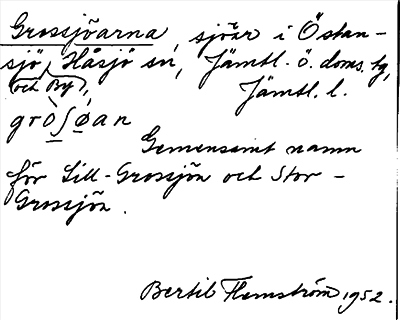 Grossjöarna, sjöar i Östan-
sjö, Håsjö sn, Jämtl. ö. doms. tg,
och By, Jämtl. l.
grò ʃ ǿan
Gemensamt namn
för Lill-Grossjön och Stor-
Grossjön.
Bertil Flemström 1952.